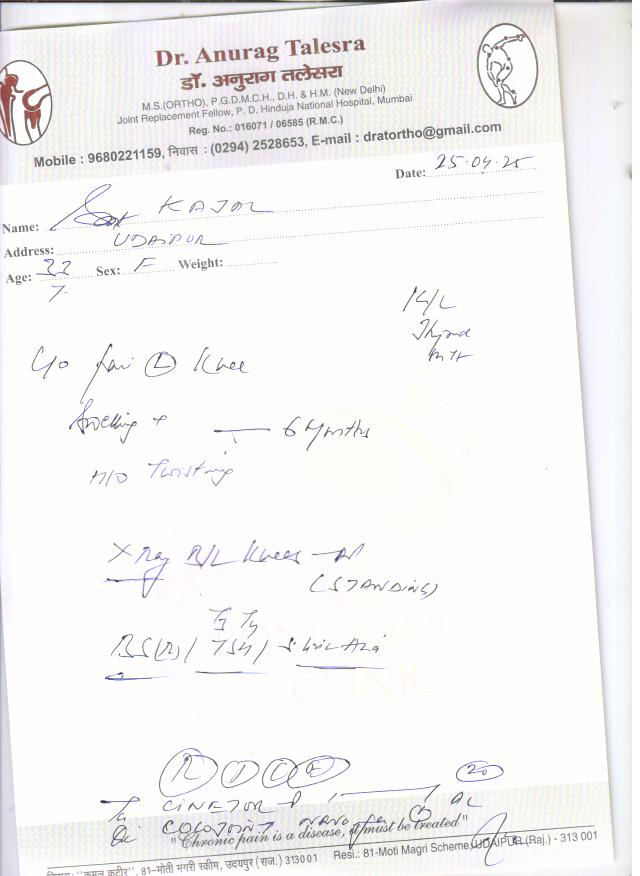 Dr. Anurag Talesra
डॉ. अनुराग तलेसरा
M.S.(ORTHO), P.G.D.M.C.H., D.H. & H.M. (New Delhi)
Joint Replacement Fellow, P. D. Hinduja National Hospital, Mumbai
Reg. No.: 016071 / 06585 (R.M.C.)
Mobile : 9680221159, निवास : (0294) 2528653, E-mail : dratortho@gmail.com
Date: 25.04.25
Name: KAJOL
Address: UDAIPUR
Age: Sex: F Weight:
K/L
C/o Pain (L) Knee
Swelling + — 6 Months
H/O Twisting
X Ray B/L Knees – AP
(STANDING)
T3 T4
BS(R) / TSH /
R I C E
20
"Chronic pain is a disease, it must be treated"
निवास: "कमल कुटीर", 81–मोती मगरी स्कीम, उदयपुर (राज.) 313001 Resi.: 81-Moti Magri Scheme, UDAIPUR (Raj.) - 313 001